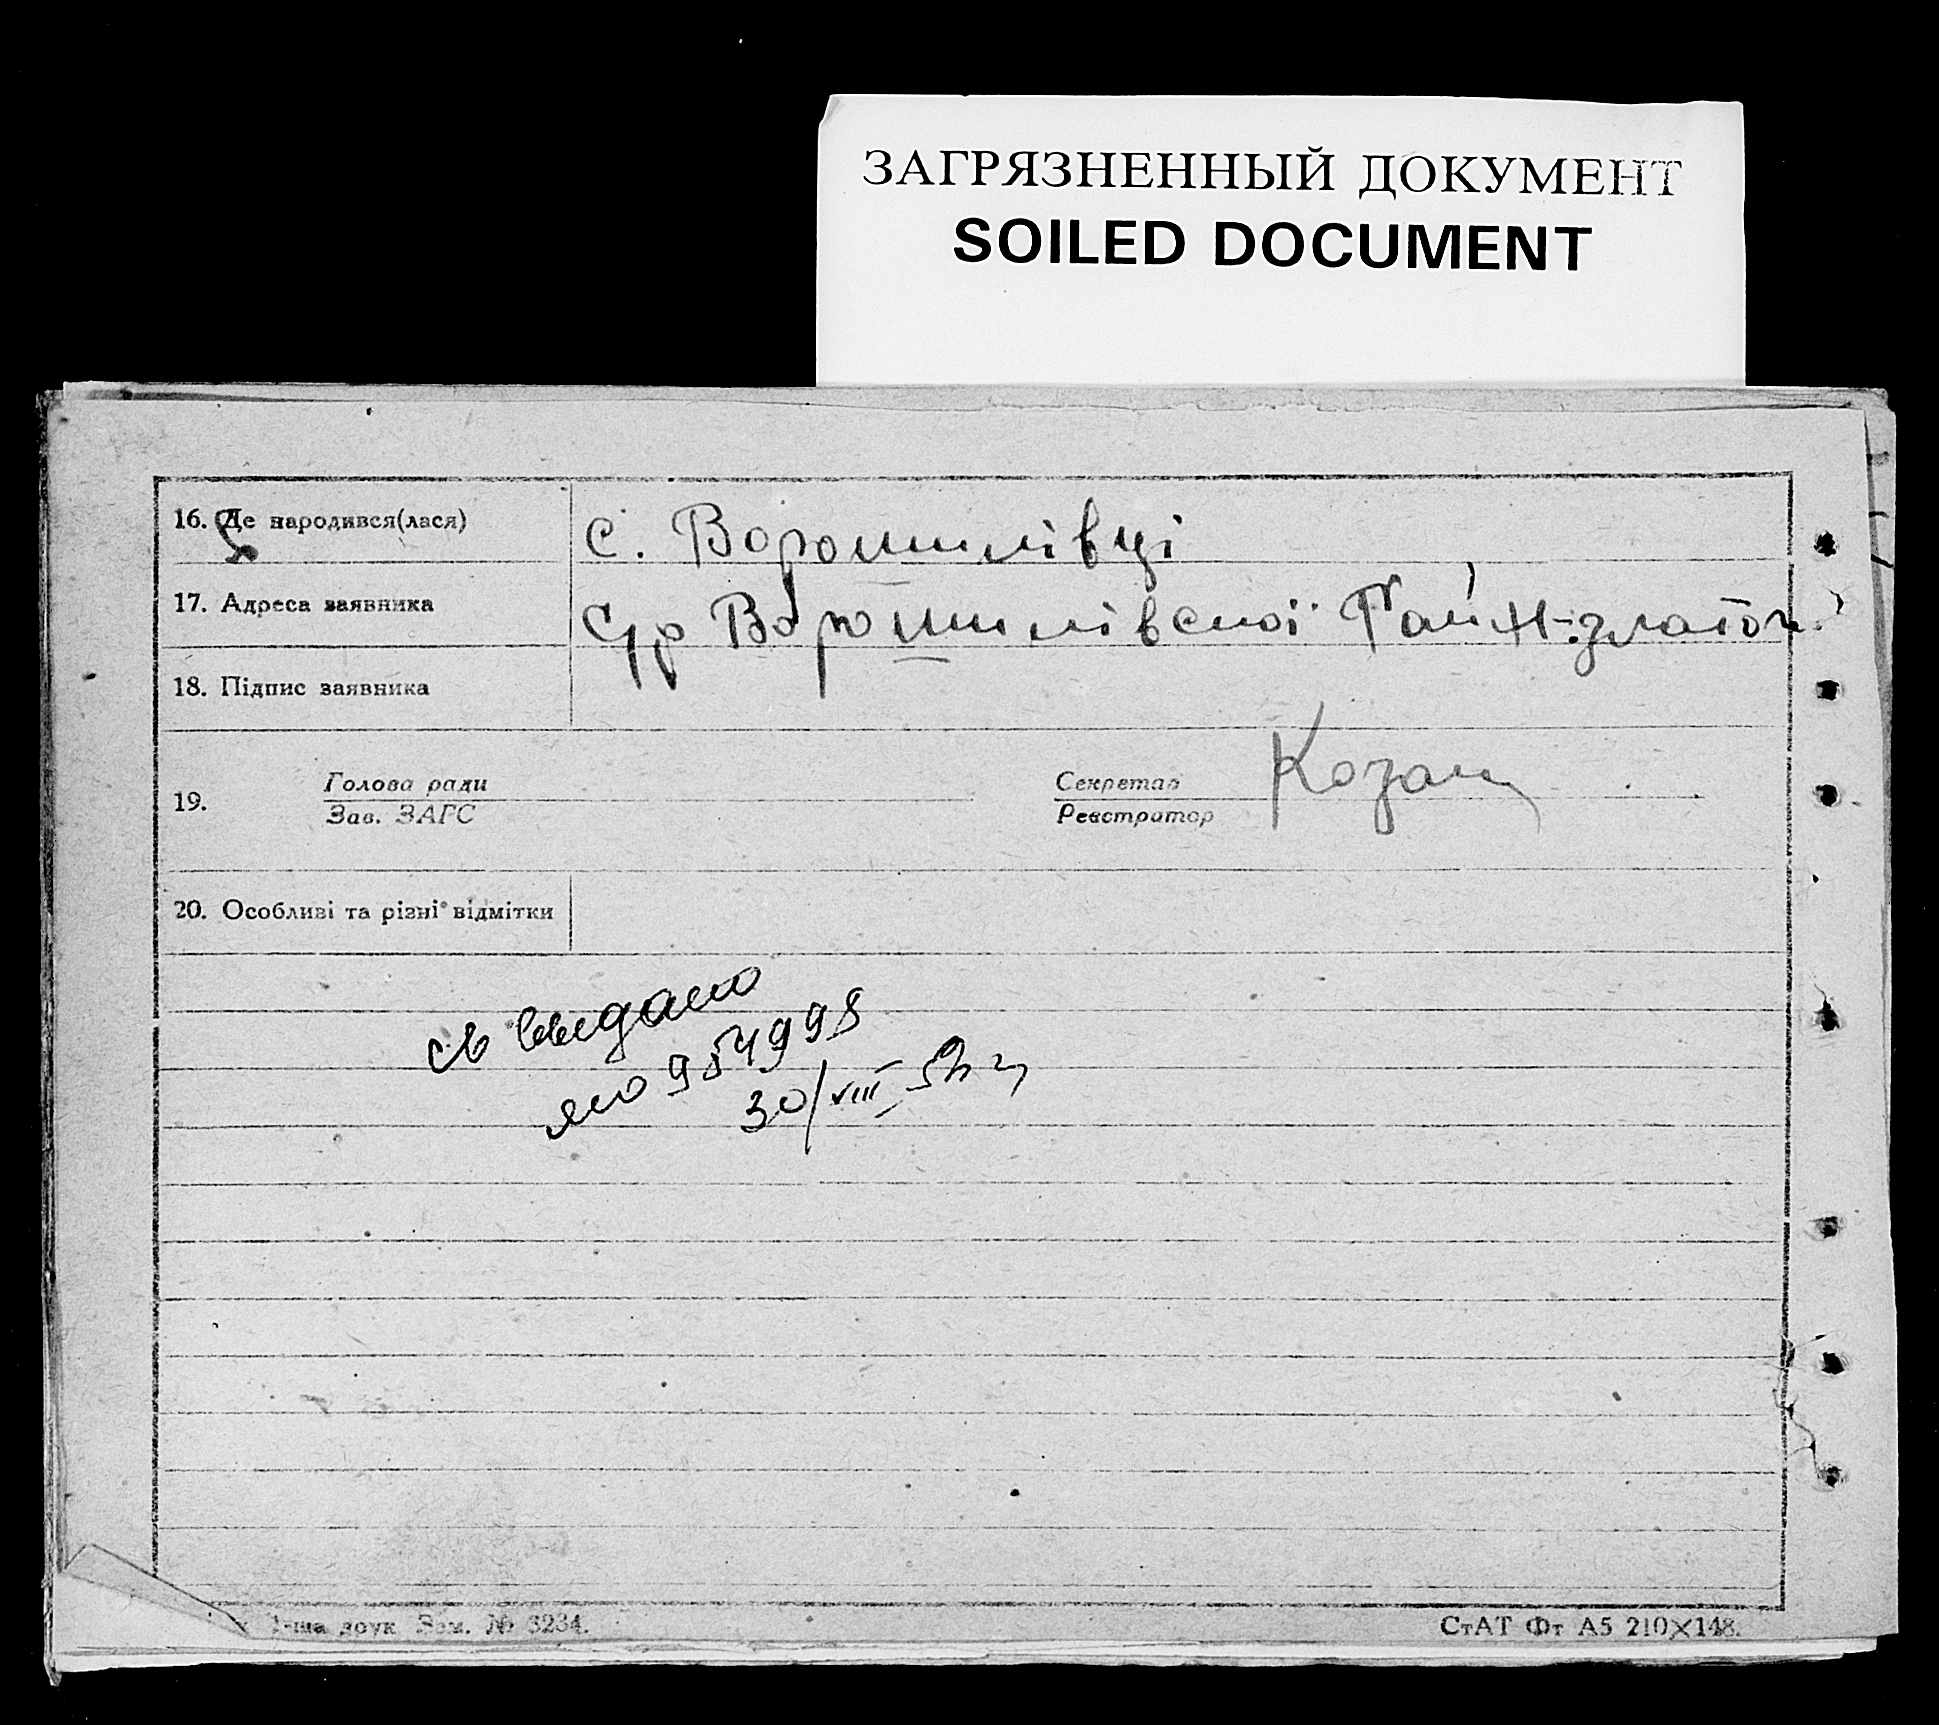 ЗАГРЯЗНЕННЫЙ ДОКУМЕНТ
SOILED DOCUMENT
16. Де народився(лася) с. Ворошилівці
17. Адреса заявника Ворошилівської
18. Підпис заявника
19. Голова ради Секретар Козак
Зав. ЗАГС Реєстратор
20. Особливі та різні відмітки
св выдано
954998
30/VIII
друк Зам. № 3234.
СтАТ Фт А5 210×148.